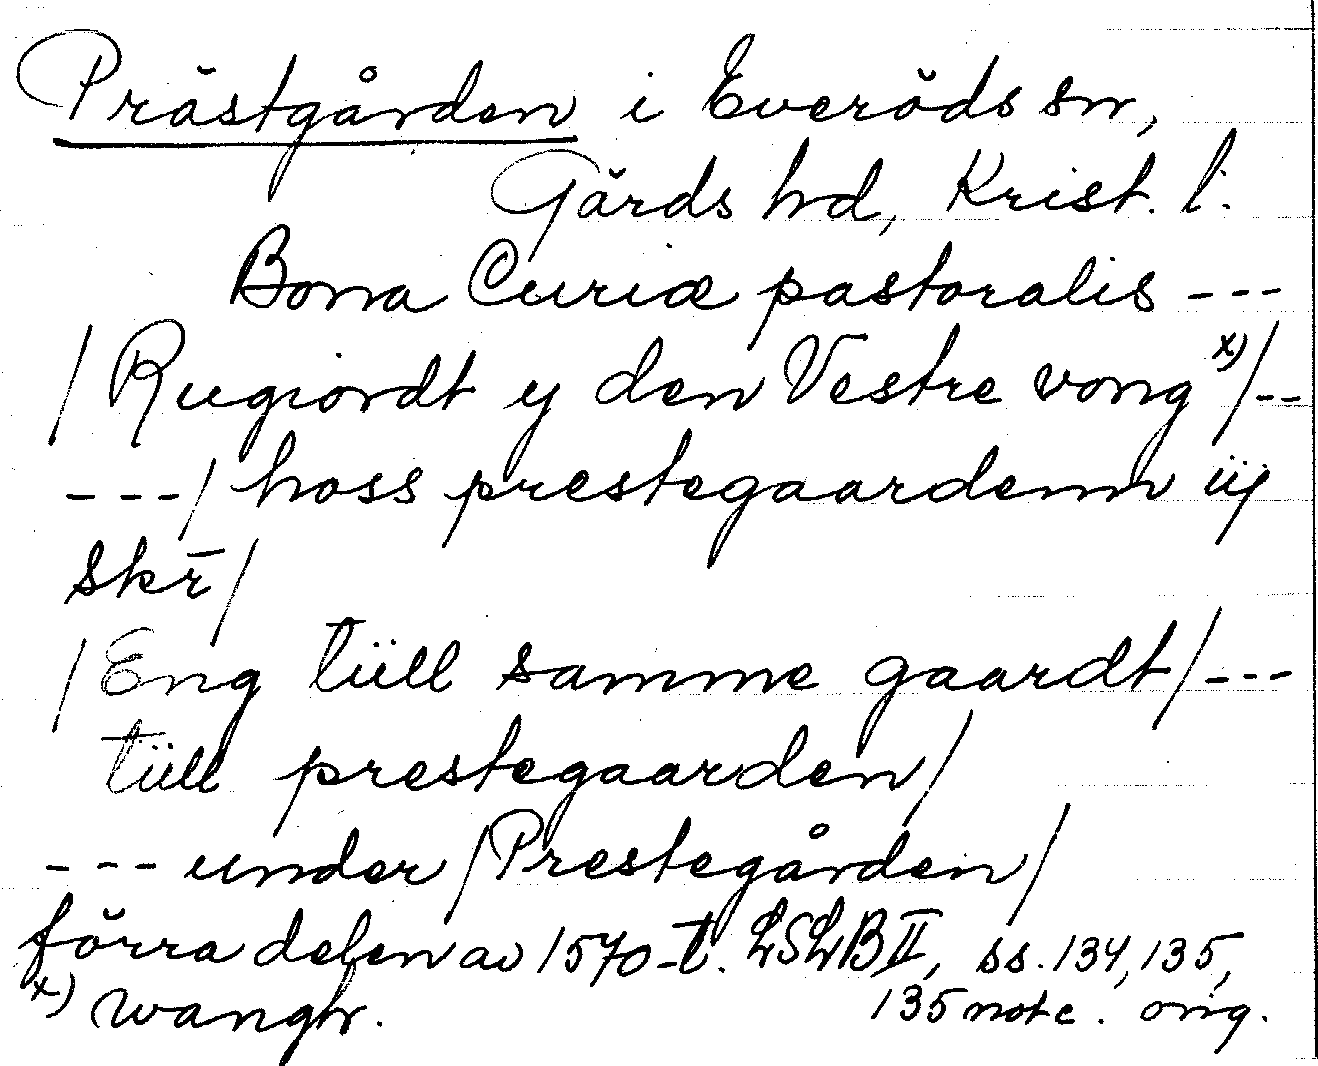 Prästgården i Everöds sn,
Gärds hd, Krist. l.
Bona Curiæ pastoralis ---
/ Rugiordt y den Vestre vong x) / --
--- / hoss prestegaardenn iij
skr̄ /
/ Eng tüll samme gaardt / ---
tüll prestegaarden /
--- under / Prestegården /
förra delen av 1570-t. LSLB II, ss. 134, 135,
x) wanghr. 135 note. orig.